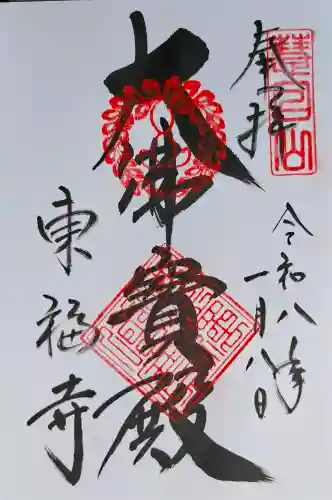 奉拝
慧日山
令和八年
一月八日
大佛寳殿
東福寺